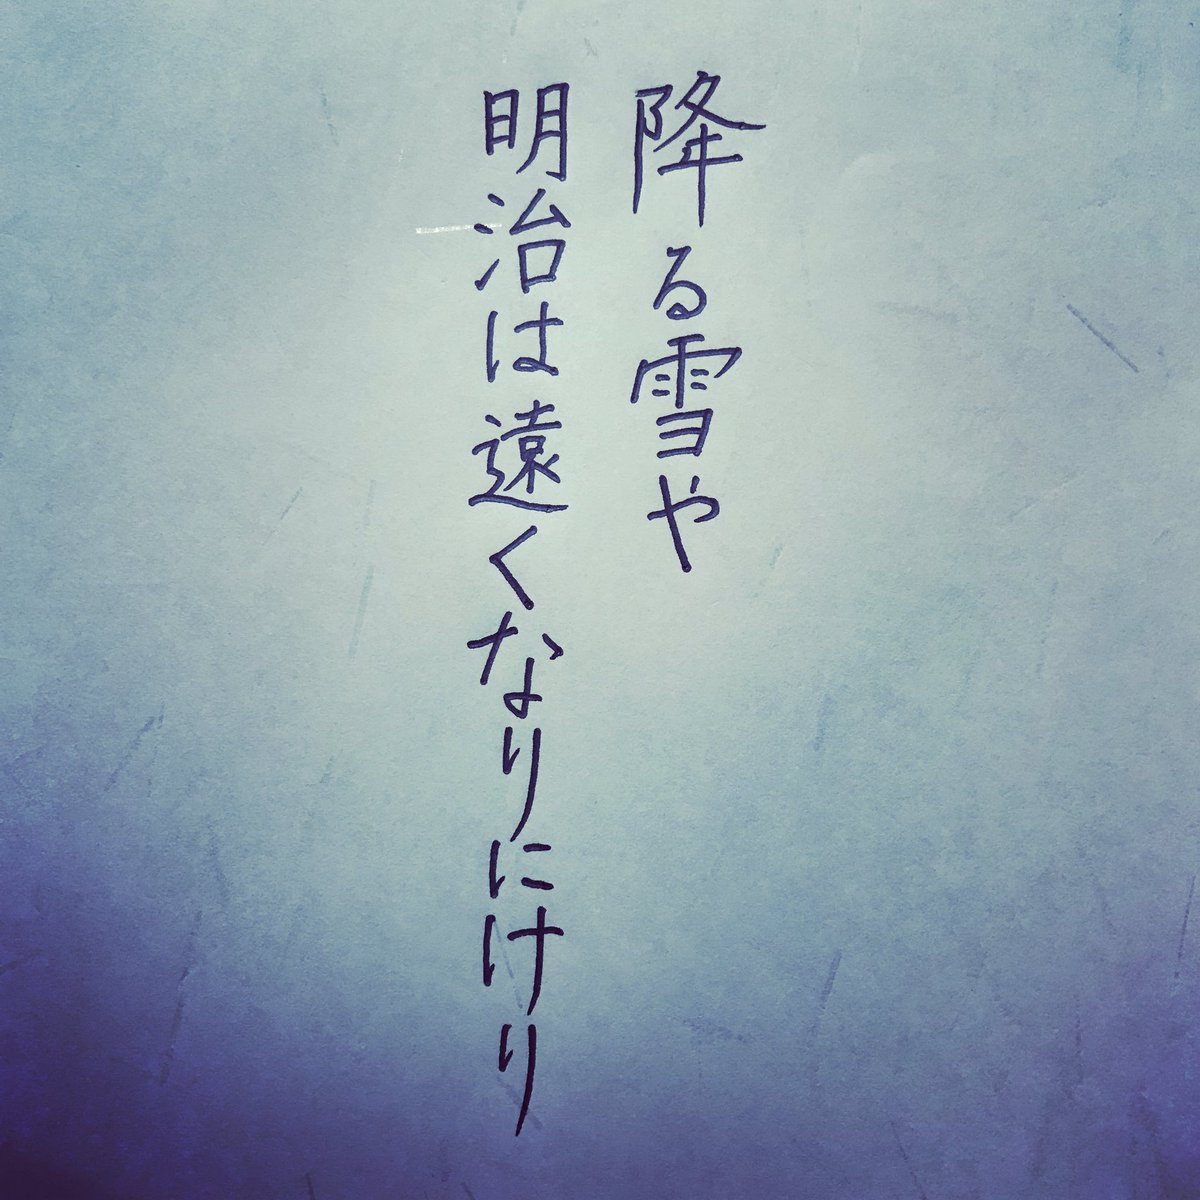 降る雪や
明治は遠くなりにけり